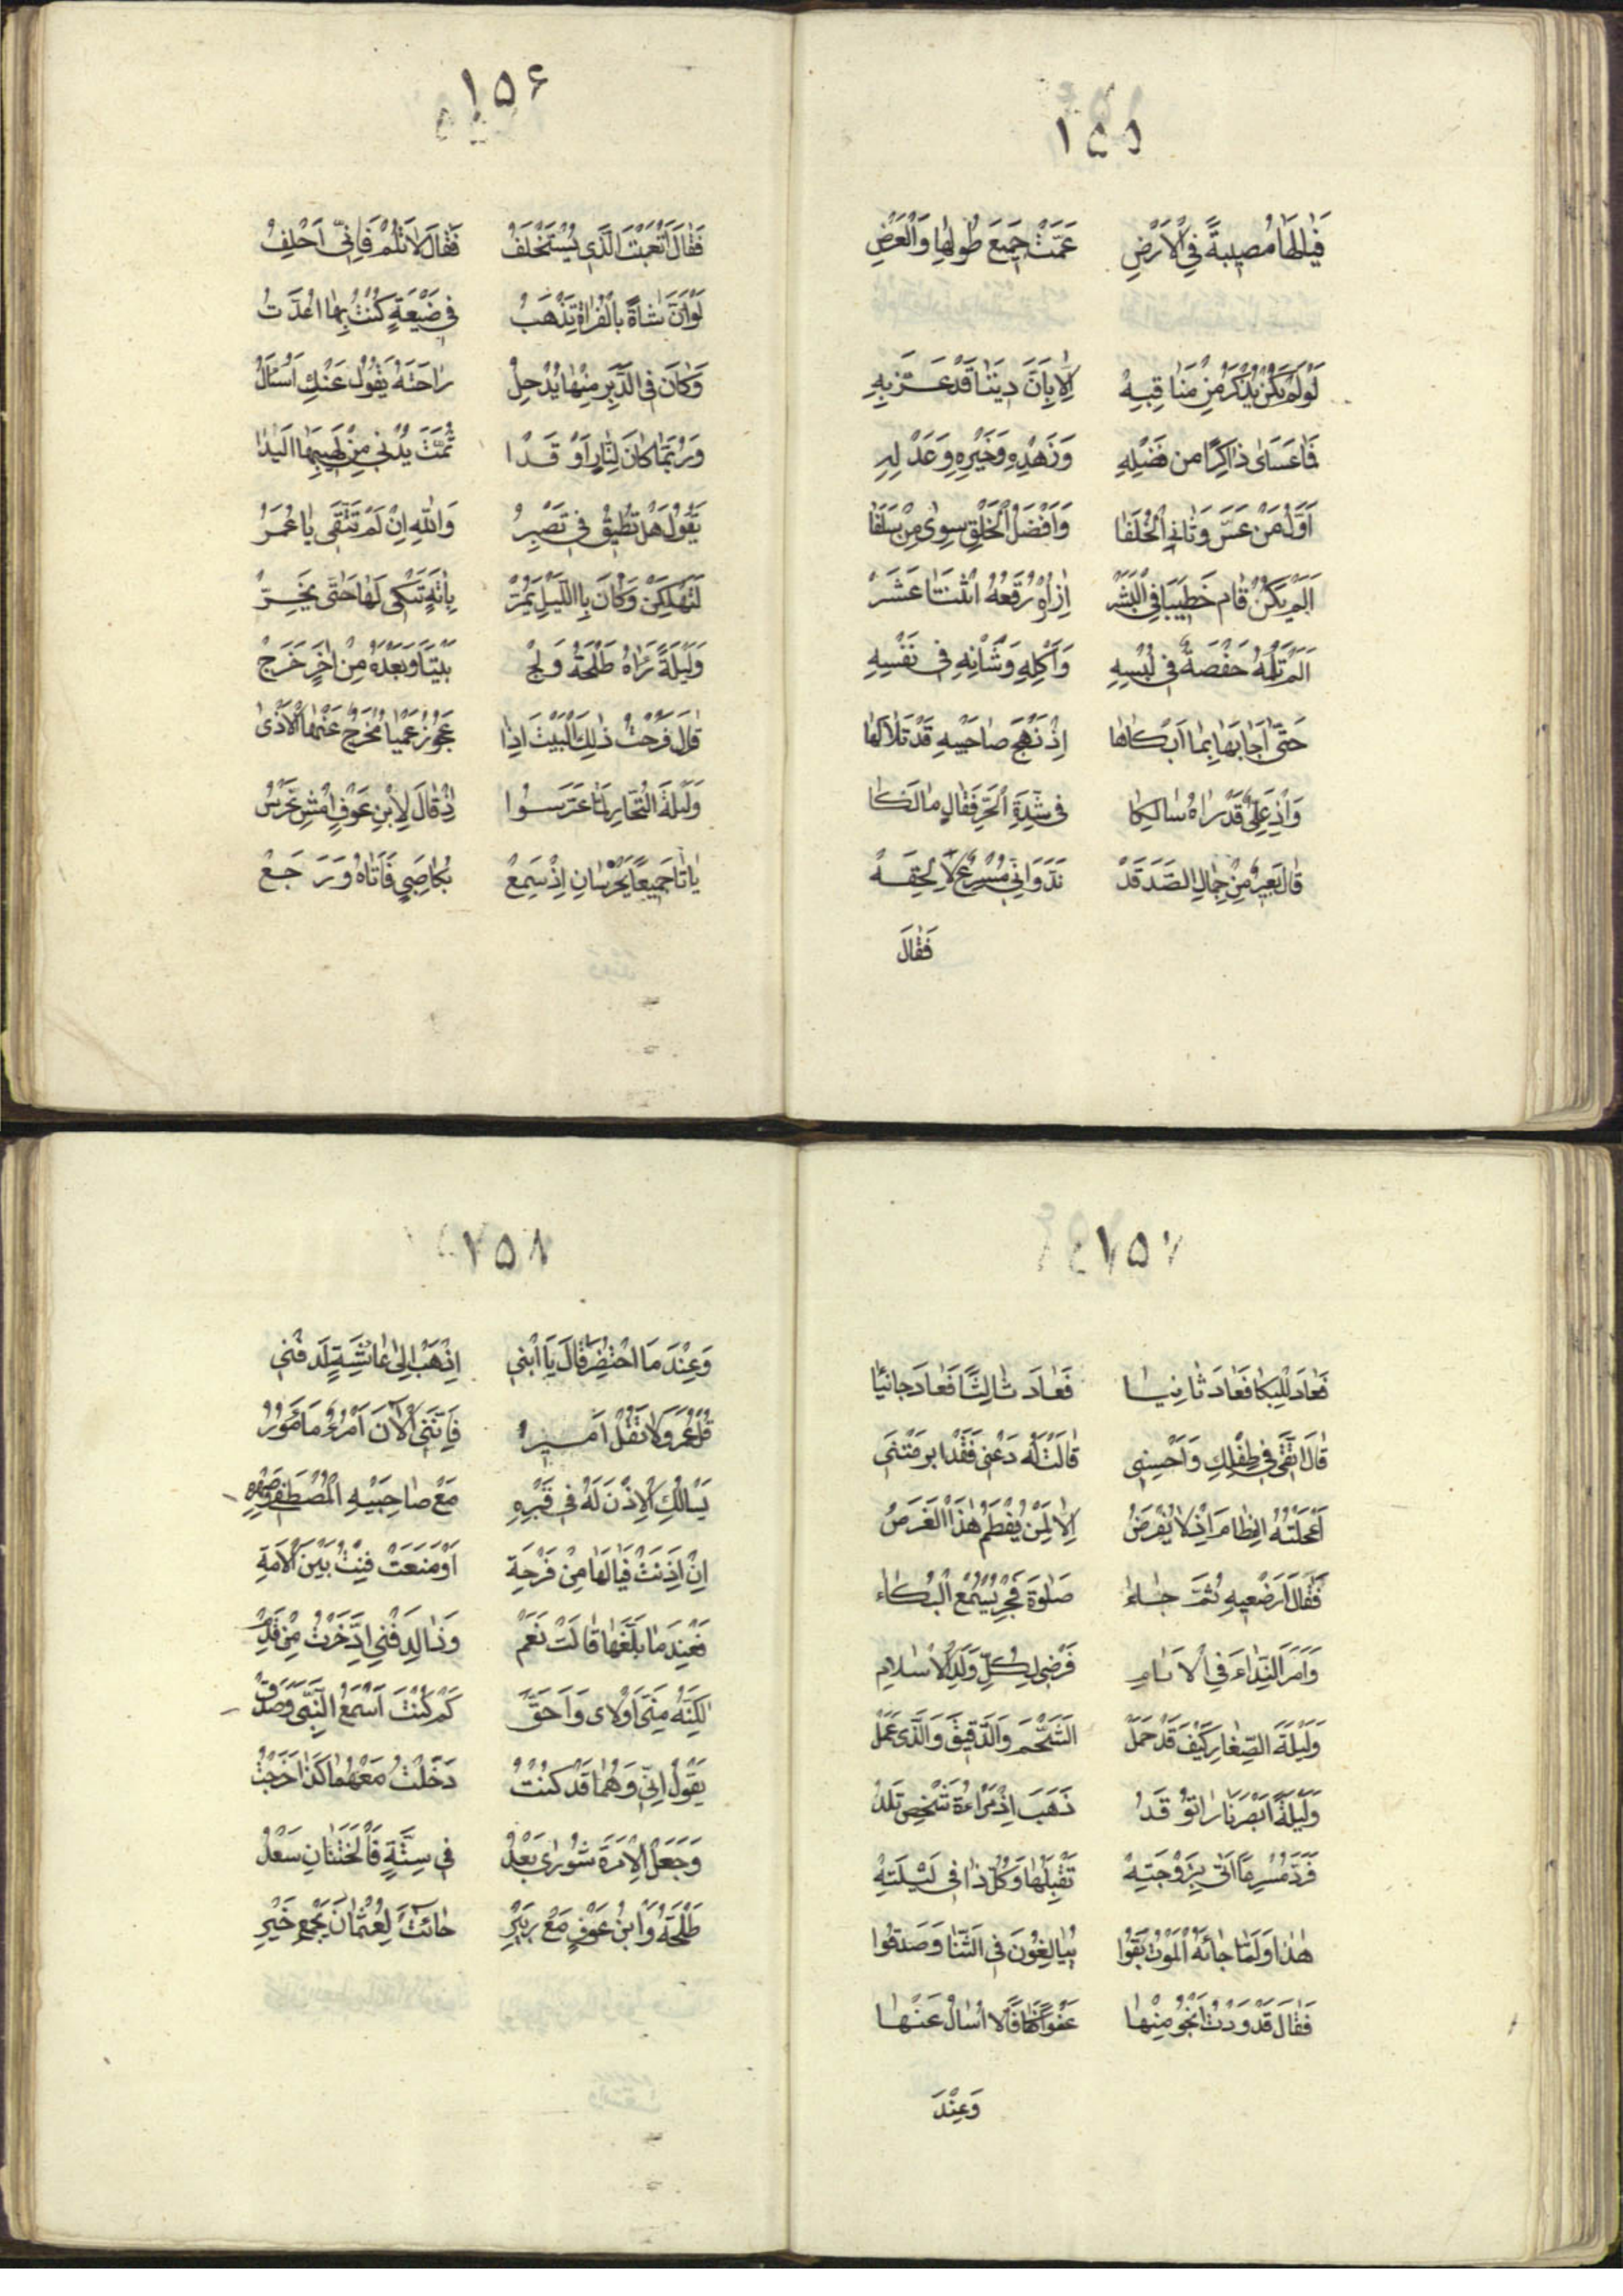 ١٥٥
فَيٰالَهٰا مُصِيبَةً فِي الْأَرْضِ عَمَّتْ جَمِيعَ طُولِهٰا وَالْعَرْضِ
لَوْ لَمْ يَكُنْ يُذْكَرُ مِنْ مَنٰاقِبِهْ اِلّٰا بِاَنَّ دِينَنٰا قَدْ عَزَّ بِهِ
فَمٰا عَسٰاى ذٰاكِرًا من فَضْلِهِ وَزُهْدِهِ وَخَيْرِهِ وَعَدْلِهِ
اَوَّلُ مَنْ عَسَّ وَثٰانِي الْخُلَفٰا وَاَفْضَلُ الْخَلْقِ سِوٰى مَنْ سَلَفٰا
اَلَمْ يَكُنْ قٰامَ خَطِيبًا فِي الْبَشَرْ اِزٰارُهُ رُقْعُهُ اثْنَتٰا عَشَرْ
اَلَمْ تَلُمْهُ حَفْصَةٌ فِي لُبْسِهِ وَاَكْلِهِ وَشَانِهِ فِي نَفْسِهِ
حَتّٰى اَجٰابَهٰا بِمٰا اَبْكٰاهٰا اِذْ نَهْجَ صٰاحِبَيْهِ قَدْ تَلٰا لَهٰا
وَاِذْ عَلِيٌّ قَدْ رَاٰهُ سٰالِكٰا فِي شِدَّةِ الْحَرِّ فَقٰالَ مٰا لَكٰا
قٰالَ بَعِيرٌ مِنْ جِمٰالِ الصَّدَقَهْ نَدَّ وَاِنِّي مُسْرِعٌ لِاَلْحَقَهْ
فَقٰالَ
١٥۶
فَقٰالَ اَتْعَبْتَ الَّذِي يُسْتَخْلَفُ فَقٰالَ لٰا تَلُمْ فَاِنِّي اَحْلِفُ
لَوْ اَنَّ شٰاةً بِالْفُرٰاةِ تَذْهَبُ فِي ضَيْعَةٍ كُنْتُ بِهٰا اُعَذَّبُ
وَكٰانَ فِي الدَّبِرِ مِنْهٰا يُدْخِلُ رٰاحَتَهُ يَقُولُ عَنْكِ اُسْئَلُ
وَرُبَّمٰا كٰانَ لِنٰارٍ اَوْقَدٰا ثُمَّتَ يُدْنِي مِنْ لَهِيبِهٰا الْيَدٰا
يَقُولُ هَلْ تُطِيقُ فِي تَصْبِرُ وَاللّٰهِ اِنْ لَمْ تَتَّقِي يٰا عُمَرُ
لَتَهْلِكَنْ وَكٰانَ بِاللَّيْلِ يَمُرّْ بِاٰيَةٍ تَبْكِي لَهٰا حَتّٰى يَخِرّْ
وَلَيْلَةً رَاٰهُ طَلْحَةُ وَلَجْ بَيْتًا وَبَعْدَهُ مِنْ اٰخَرٍ خَرَجْ
قٰالَ فَرُحْتُ ذٰلِكَ الْبَيْتَ اِذٰا عَجُوزُ عَمْيٰا مُخْرِجٌ عَنْهٰا الْاَذٰى
وَلَيْلَةَ التُّجّٰارِ لَمّٰا عَرَّسُوا اِذْ قٰالَ لِابْنِ عَوْفٍ امْشِ نَحْرُسُ
بٰاتٰا جَمِيعًا يَحْرُسٰانِ اِذْ سَمِعْ بُكٰا صَبِيٍّ فَاَتٰاهُ وَرَجَعْ
١٥٧
فَعٰادَ لِلْبُكٰا فَعٰادَ ثٰانِيٰا فَعٰادَ ثٰالِثًا فَعٰادَ جٰائِيًا
قٰالَ اتَّقِي فِي طِفْلِكِ وَاَحْسِنِي قٰالَتْ لَهُ دَعْنِي فَقَدْ ابرمتني
اَعْجَلْتُهُ الْفِطٰامَ اِذْ لٰا يُفْرَضُ اِلّٰا لِمَنْ يُفْطَمُ هٰذَا الْغَرَضُ
فَقٰالَ اَرْضِعِيهِ ثُمَّ جٰاءَ صَلٰوةَ فَجْرٍ يُسْمِعُ الْبُكٰاءَ
وَاَمَرَ النِّدٰاءَ فِي الْاَنٰامِ فَرْضِي لِكُلِّ وَلَدِ الْاِسْلٰامِ
وَلَيْلَةَ الصِّغٰارِ كَيْفَ قَدْ حَمَلْ الشَّحْمَ وَالدَّقِيقَ وَالَّذِي عَمَلْ
وَلَيْلَةً اَبْصَرَ نٰارًا تُوقَدُ ذَهَبَ اِذْ مَرْاءَةُ شَخْصٍ تَلِدُ
فَرَدَّ مُسْرِعًا اَتٰى بِزَوْجَتِهْ تَقْبَلُهٰا وَكُلُّ ذٰا فِي لَيْلَتِهْ
هٰذٰا وَلَمّٰا جٰائَهُ الْمَوْتُ بَقُوا يُبٰالِغُونَ فِي الثَّنٰا وَصَدَقُوا
فَقٰالَ قَدْ وَدِدْتُ اَنْجُو مِنْهٰا عَفْوًا كَفٰافًا لٰا اُسٰالُ عَنْهٰا
وَعِنْدَ
١٥٨
وَعِنْدَ مَا احْتُضِرَ قٰالَ يَا ابْنِي اِذْهَبْ اِلٰى عٰائِشَةٍ لِدَفْنِي
قُلْ عُمَرٌ وَلٰا تَقُلْ اَمِيرُ فَاِنَّنِي الْاٰنَ امْرُءٌ مَاْمُورُ
يَسْالُكِ الْاِذْنَ لَهُ فِي قَبْرِهِ مَعْ صٰاحِبَيْهِ الْمُصْطَفٰى وَصِهْرِهِ
اِنْ اَذِنَتْ فَيٰا لَهٰا مِنْ فَرْحَةِ اَوْ مَنَعَتْ فَبِتُّ بَيْنَ الْاُمَّةِ
فَعِنْدَ مٰا بَلَغَهٰا قٰالَتْ نَعَم وَذٰا لِدَفْنِي ادَّخَرْتُ مِنْ قِدَمْ
لٰكِنَّهُ مِنِّي اَوْلٰاى وَاَحَقّْ كَمْ كُنْتُ اَسْمَعُ النَّبِيَّ وَصَدَقْ
يَقُولُ اِنِّي وَهُمٰا قَدْ كُنْتُ دَخَلْتُ مَعْهُمٰا كَذٰا خَرَجْتُ
وَجَعَلَ الْاِمْرَةَ شُورٰى بَعْدُ فِي سِتَّةٍ فَالْخَتَنٰانِ سَعْدُ
طَلْحَةُ وَابْنُ عَوْفٍ مَعْ زُبَيْرِ حٰانَتْ لِعُثْمٰانَ بِجَمْعِ خَيْرِ